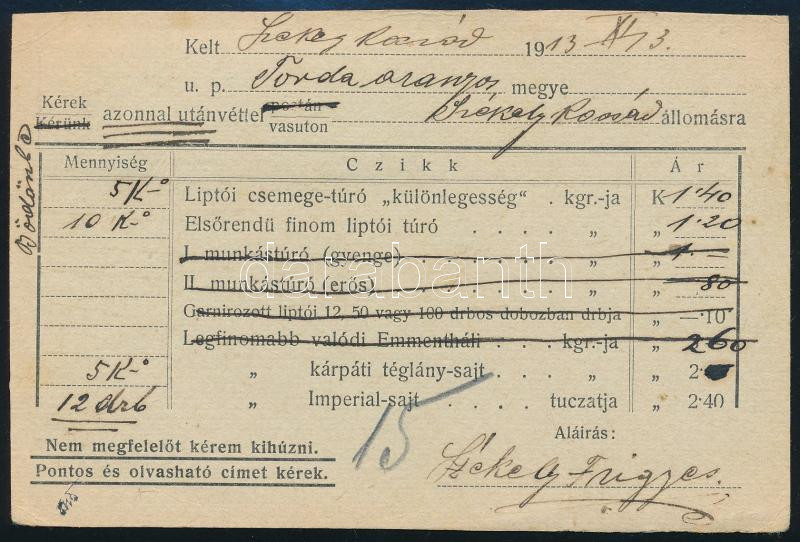 Kelt Szekelykocsárd 1913 XI/13.
u. p. Torda aranyos megye
Kérek
Kérünk azonnal utánvéttel postán
vasuton Székelykocsárd állomásra
Bödönbe
Mennyiség Czikk Ár
5 K-o Liptói csemege-túró „különlegesség" . kgr.-ja K 1·40
10 K-o Elsőrendü finom liptói túró . . . . „ „ 1·20
I. munkástúró (gyenge) . . . . „ „ 1·—
II munkástúró (erős) . . . . „ „ 80
Garnirozott liptói 12, 50 vagy 100 drbos dobozban drbja „ —·10
Legfinomabb valódi Emmentháli . . kgr.-ja „ 260
5 K-o „ kárpáti téglány-sajt . . „ „ 2·
12 drb „ Imperial-sajt . . . . tuczatja „ 2·40
15
Nem megfelelőt kérem kihúzni.
Pontos és olvasható címet kérek.
Aláirás:
Székely Frigyes
darabanth